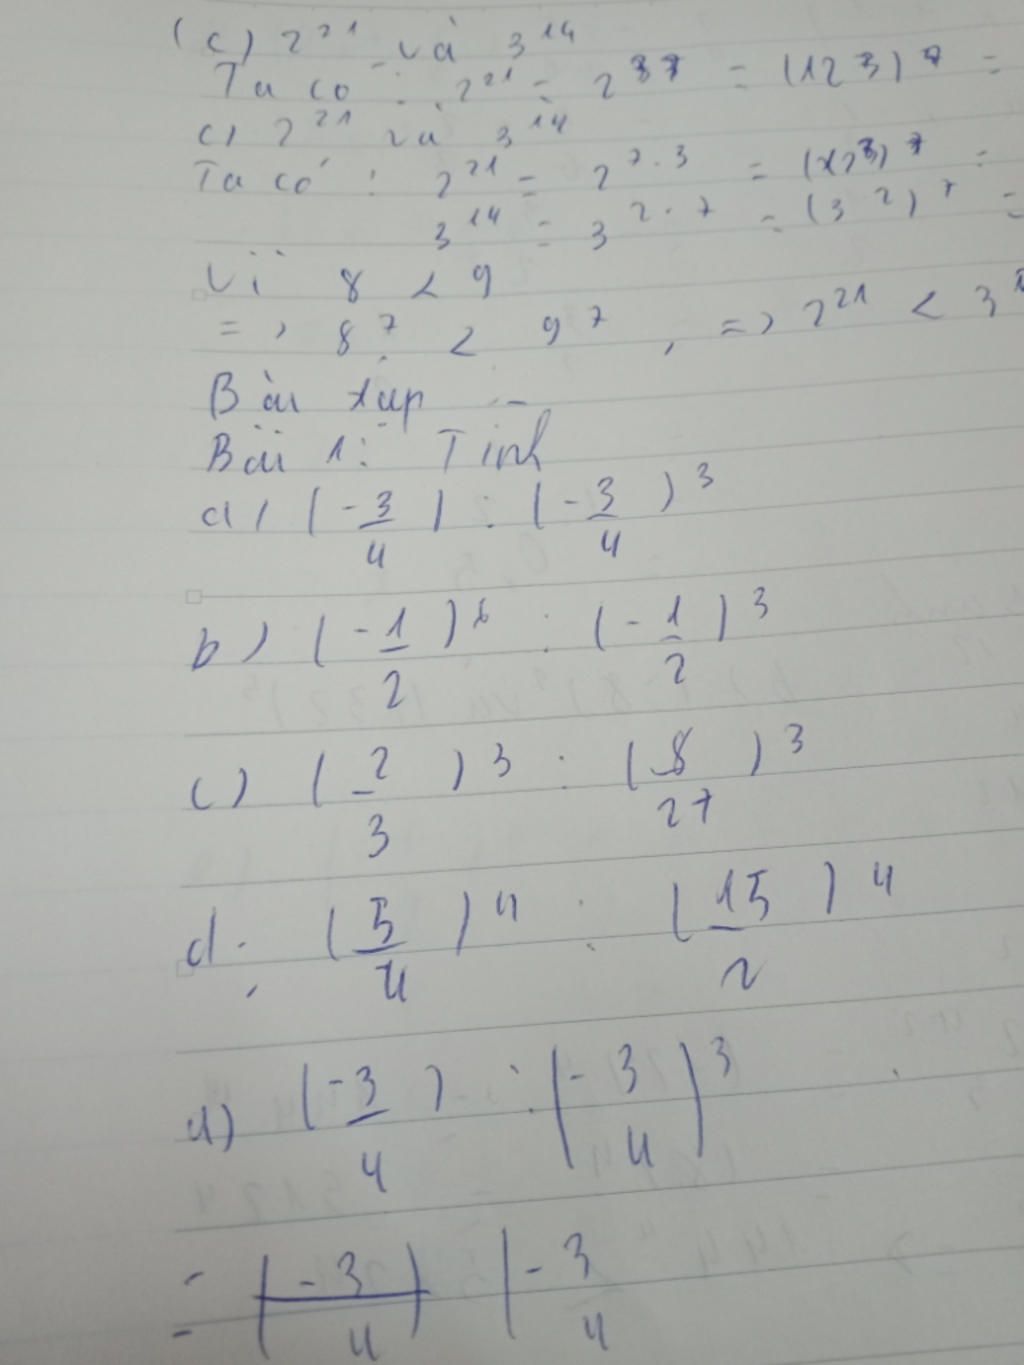 (c) 2^21 và 3^14
Ta co : 2^21 = 2^37 = (123)^7 =
c) 2^21 và 3^14
Ta có : 2^21 = 2^7.3 = (2^3)^7 =
3^14 = 3^2.7 = (3^2)^7 =
Vì 8 < 9
=> 8^7 < 9^7, => 2^21 < 3^1
Bài tập
Bài 1: Tính
a) (-3/4) : (-3/4)^3
b) (-1/2) : (-1/2)^3
c) (2/3)^3 : (8/27)^3
d. (5/4)^4 : (15/2)^4
a) (-3/4) : (-3/4)^3
= (-3/4) (-3/4